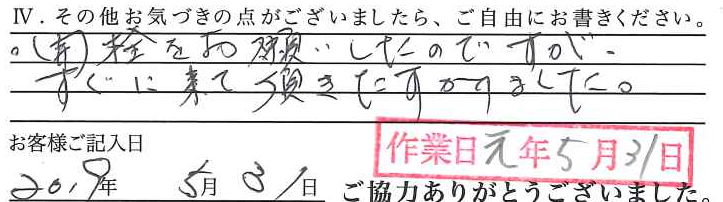 Ⅳ．その他お気づきの点がございましたら、ご自由にお書きください。
。(再)検をお願いしたのですが、
すぐに来て頂きたすかりました。
お客様ご記入日
作業日元年5月31日
2019年 5月31日 ご協力ありがとうございました。